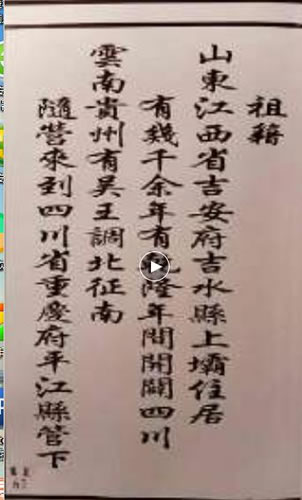 祖籍
山東江西省吉安府吉水縣上壩住居
有幾千余年有隆年間開闢四川
雲南貴州有吳王調北征南
隨營來到四川省重慶府平江縣管下